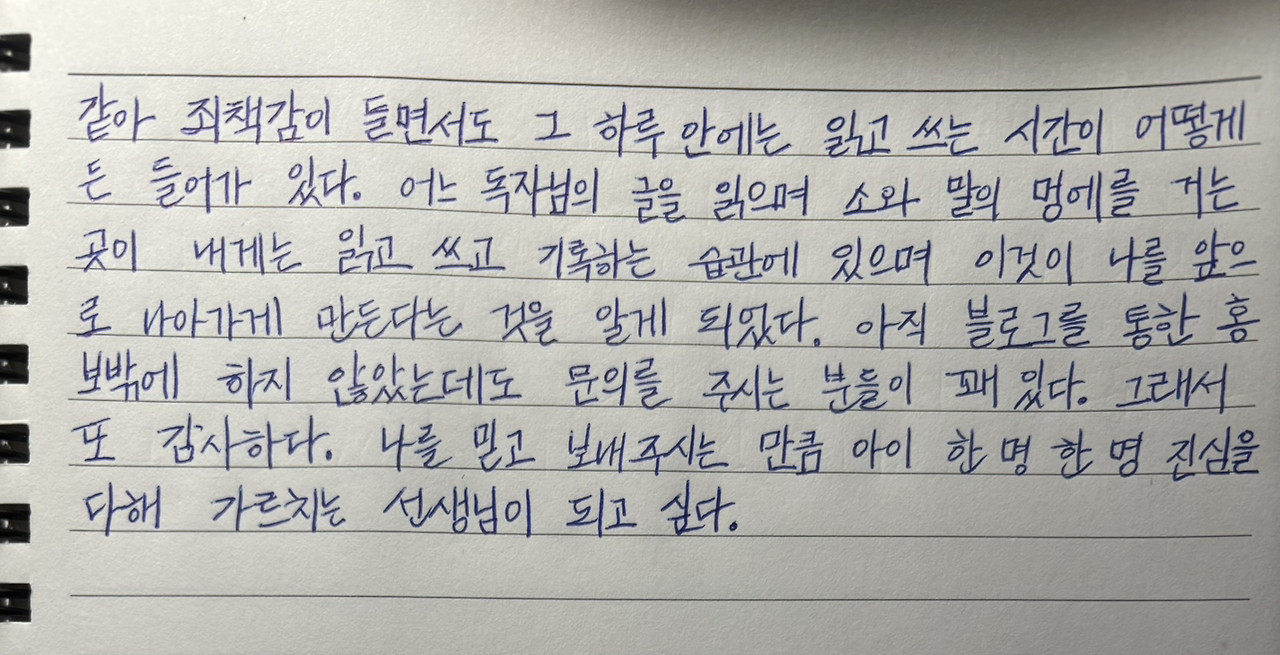 같아 죄책감이 들면서도 그 하루 안에는 읽고 쓰는 시간이 어떻게
든 들어가 있다. 어느 독자님의 글을 읽으며 소와 말의 멍에를 거는
곳이 내게는 읽고 쓰고 기록하는 습관에 있으며 이것이 나를 앞으
로 나아가게 만든다는 것을 알게 되었다. 아직 블로그를 통한 홍
보밖에 하지 않았는데도 문의를 주시는 분들이 꽤 있다. 그래서
또 감사하다. 나를 믿고 보내주시는 만큼 아이 한 명 한 명 진심을
다해 가르치는 선생님이 되고 싶다.